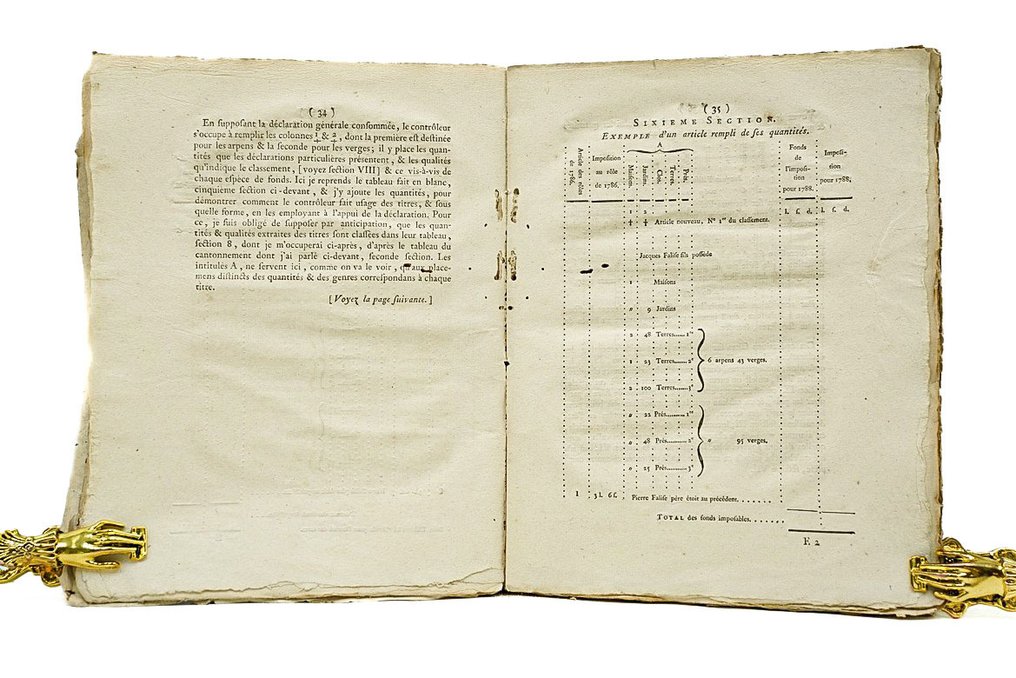 ( 34 )
En ſuppoſant la déclaration générale conſommée, le contrôleur
s'occupe à remplir les colonnes 1 & 2, dont la premiere eſt deſtinée
pour les arpens & la ſeconde pour les verges; il y place les quan-
tités que les déclarations particulieres préſentent, & les qualités
qu'indique le claſſement, [voyez ſection VIII] & ce vis-à-vis de
chaque eſpèce de fonds. Ici je reprends le tableau fait en blanc,
cinquième ſection ci-devant, & j'y ajoute les quantités, pour
démontrer comment le contrôleur fait uſage des titres, & ſous
quelle forme, en les employant à l'appui de la déclaration. Pour
ce, je ſuis obligé de ſuppoſer par anticipation, que les quan-
tités & qualités extraites des titres ſont claſſées dans leur tableau,
ſection 8, dont je m'occuperai ci-après, d'après le tableau du
cantonnement dont j'ai parlé ci-devant, ſeconde ſection. Les
intitulés A, ne ſervent ici, comme on va le voir, qu'aux place-
mens diſtincts des quantités & des genres correſpondans à chaque
titre.
[Voyez la page ſuivante.]
( 35 )
SIXIEME SECTION.
EXEMPLE d'un article rempli de ſes quantités.
A
Article des rôles de 1786.
Impoſition
au rôle
de 1786.
Maiſons.
Jardins.
Clos.
Terres.
Prés.
Fonds
de
l'impoſi-
tion
pour 1788.
Impoſi-
tion
pour 1788.
l. ſ. d. l. ſ. d.
1 2
Article nouveau, N° 1er du claſſement.
Jacques Faliſe fils poſſède
1 Maiſons
0 9 Jardins
2 48 Terres......1re
1 23 Terres......2e 6 arpens 43 verges.
2 100 Terres......3e
0 22 Prés........1re
0 48 Prés........2e 0 95 verges.
0 25 Prés........3e
1 3 l. 6 ſ. Pierre Faliſe père étoit au précédent.......
TOTAL des fonds impoſables.......
E 2